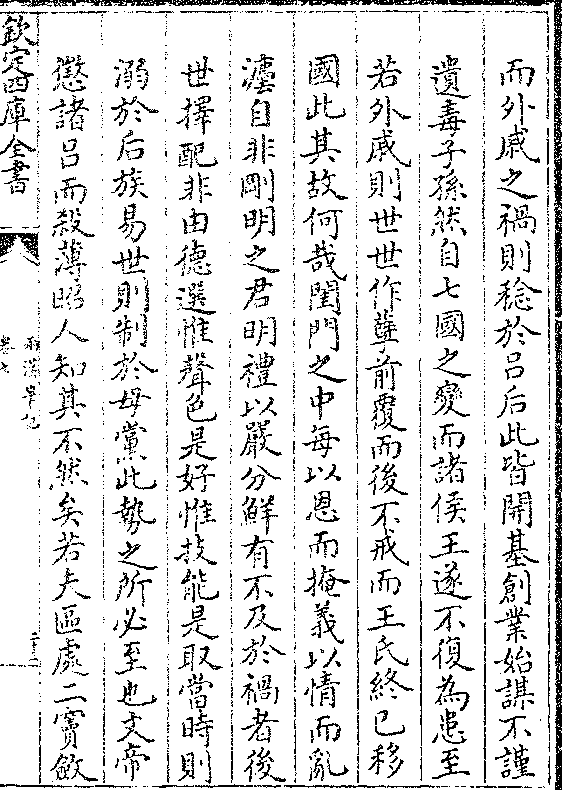 而外戚之禍則稔於呂后此皆開基創業始謀不謹
遺毒子孫然自七國之變而諸侯王遂不復為患至
若外戚則世世作孽前覆而後不戒而王氏終已移
國此其故何哉閨門之中每以恩而掩義以情而亂
瀍自非剛明之君明禮以嚴分鮮有不及於禍者後
世擇配非由德選惟聲色是好惟技能是取當時則
溺於后族易世則制於母黨此勢之所必至也文帝
懲諸呂而殺薄昭人知其不然矣若夫區處二竇斂
欽定四庫全書
兩漢筆記
卷七
二十二